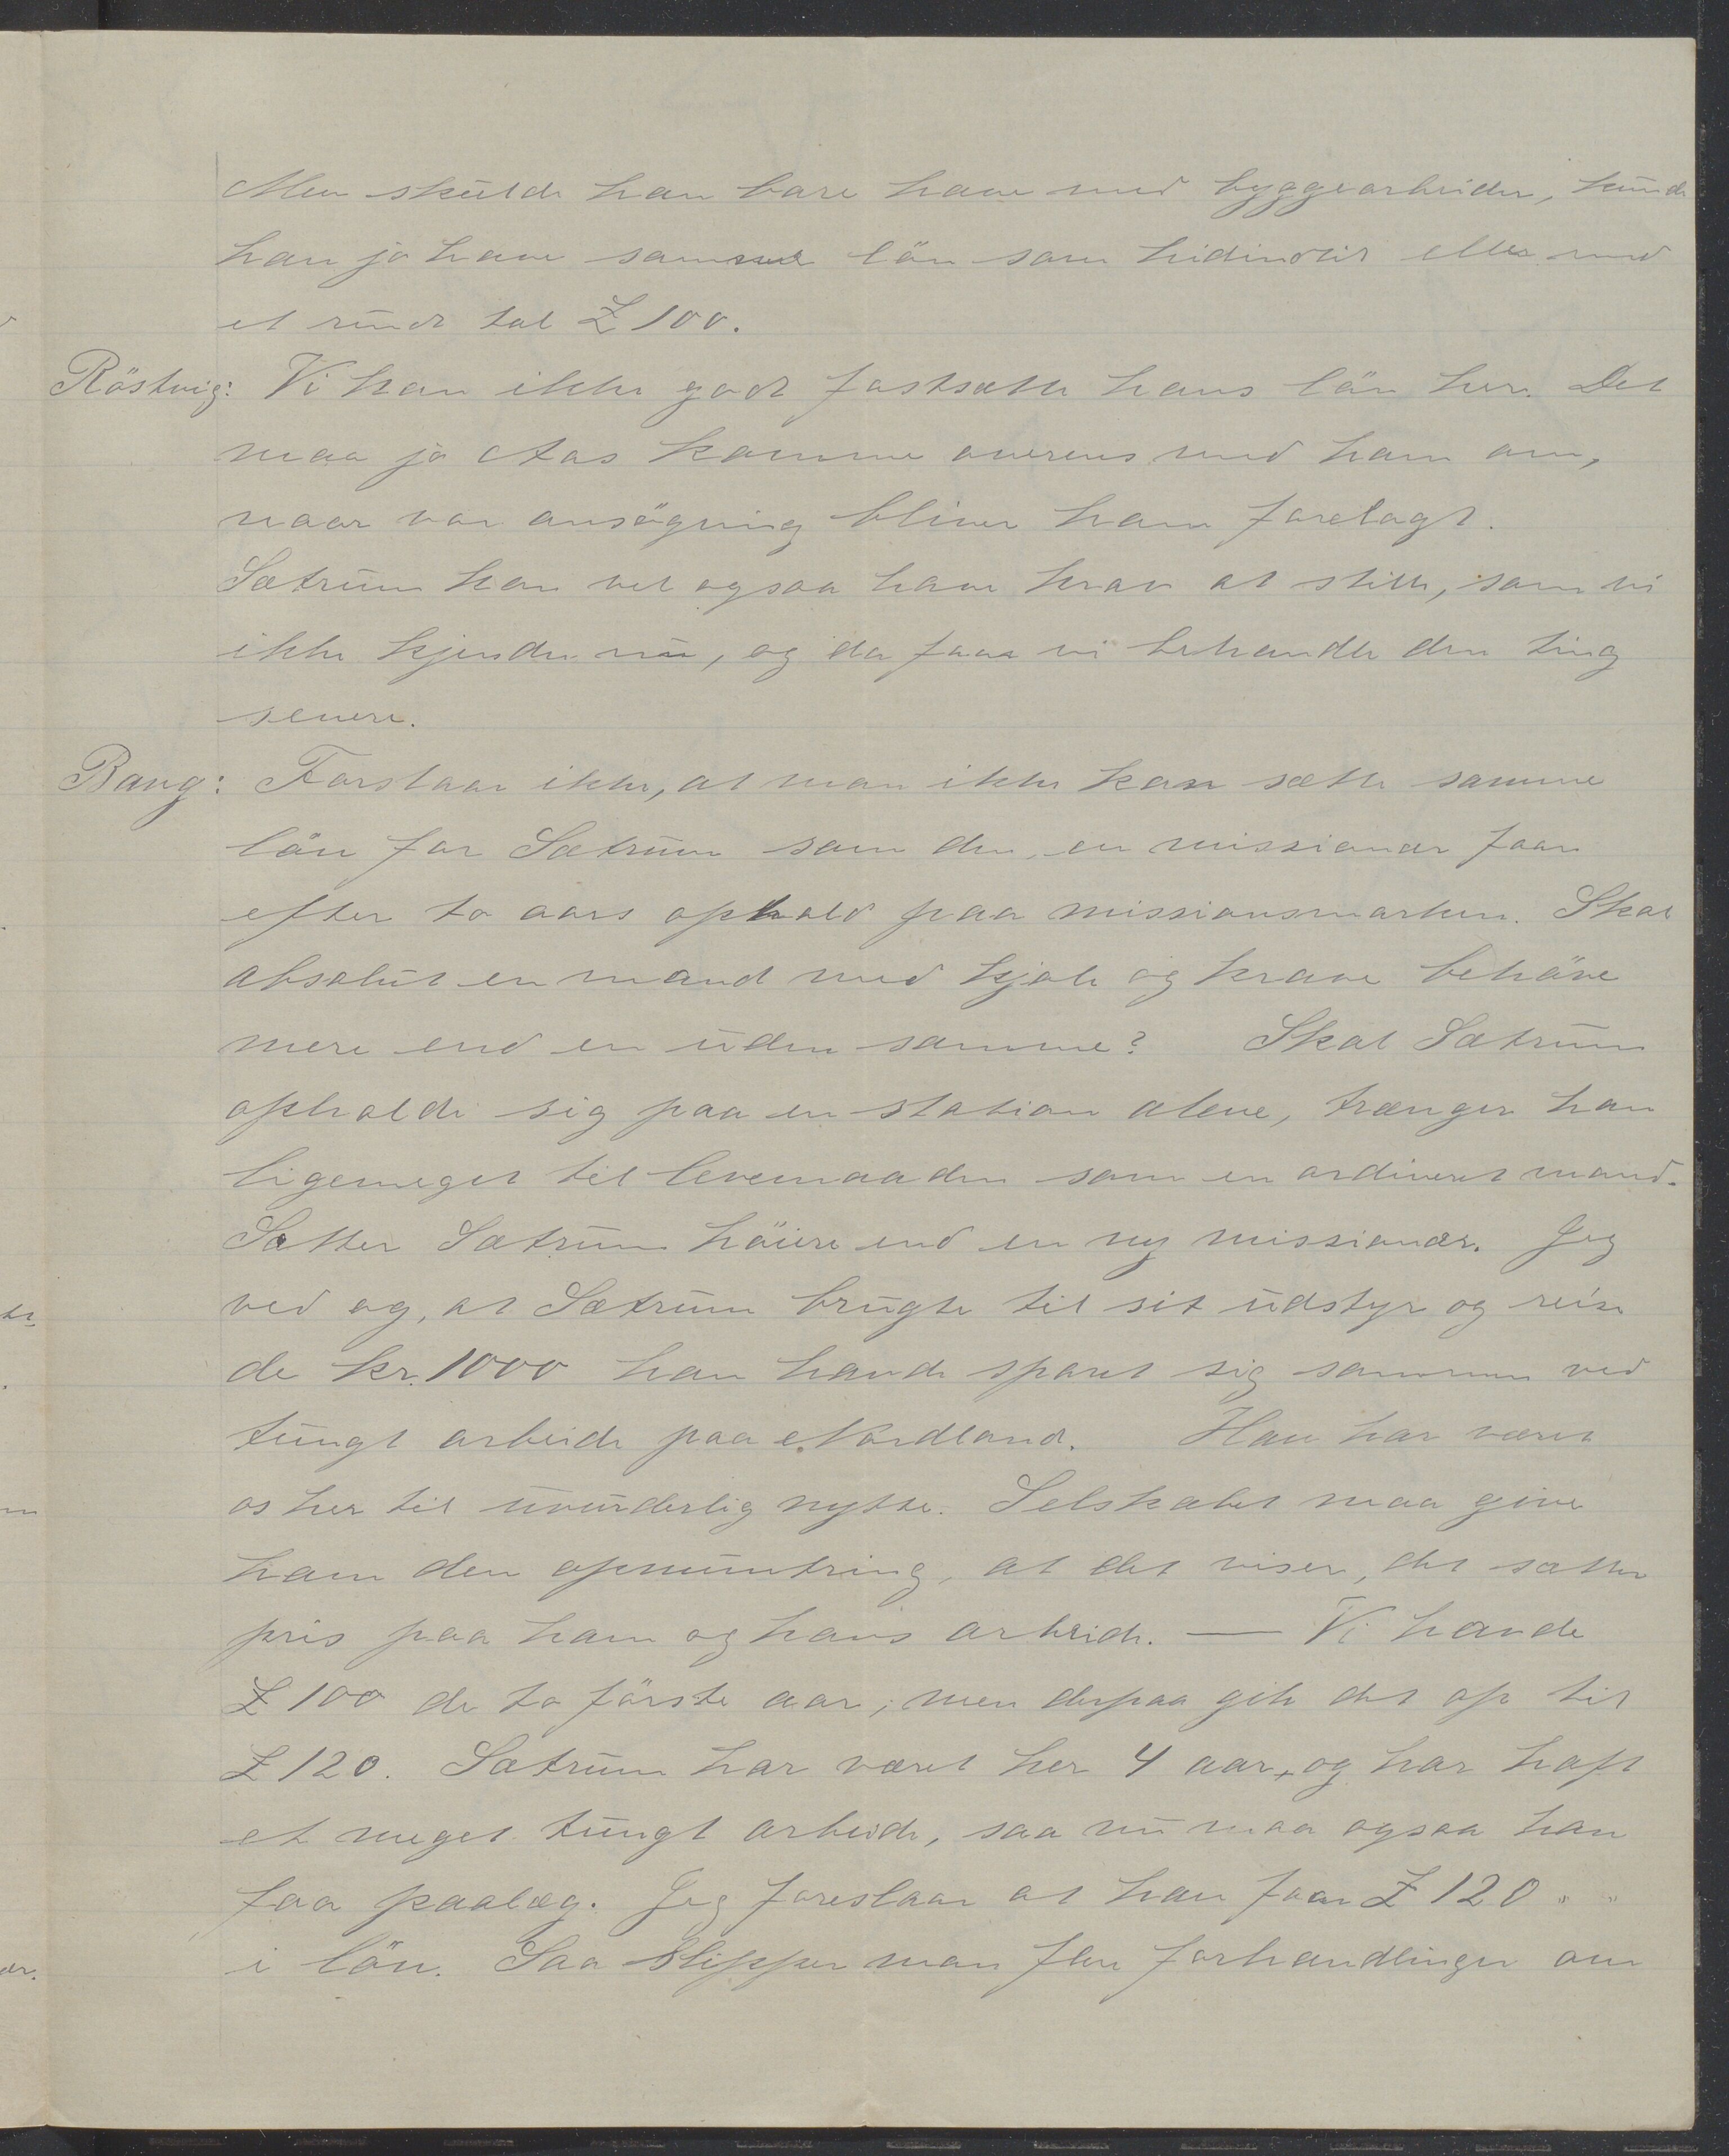 Men skulde han bare have med byggearbeider, kunde
han jo have samme lön som hidindtil eller med
et rundt tal £ 100.
Röstvig: Vi kan ikke godt fastsætte hans lön her. Det
maa jo Aas komme overens med ham om,
naar vor ansögning bliver ham forelagt.
Sætrum kan vel ogsaa have krav at stille, som vi
ikke kjender nu, og da faar vi behandle den ting
senere.
Bang: Forstaar ikke, at man ikke kan sætte samme
lön for Sætrum som den, en missionær faar
efter to aars ophold paa missionsmarken. Skal
absolut en mand med kjole og krave behöve
mere end en uden samme? Skal Sætrum
opholde sig paa en station alene, trænger han
ligemeget til levemaaden som en ordineret mand.
Sætter Sætrum höiere end en ny missionær. Jeg
ved og, at Sætrum brugte til sit udstyr og reise
de kr. 1000 han havde sparet sig sammen ved
tungt arbeide paa Nordland. Han har været
os her til uvurderlig nytte. Selskabet maa give
ham den opmuntring, at det viser, det sætter
pris paa ham og hans arbeide. — Vi havde
£ 100 de to förste aar; men derpaa gik det op til
£ 120. Sætrum har været her 4 aar, og har haft
et meget tungt arbeide, saa nu maa ogsaa han
faa paalæg. Jeg foreslaar at han faar £ 120 " "
i lön. Saa slipper man flere forhandlinger om